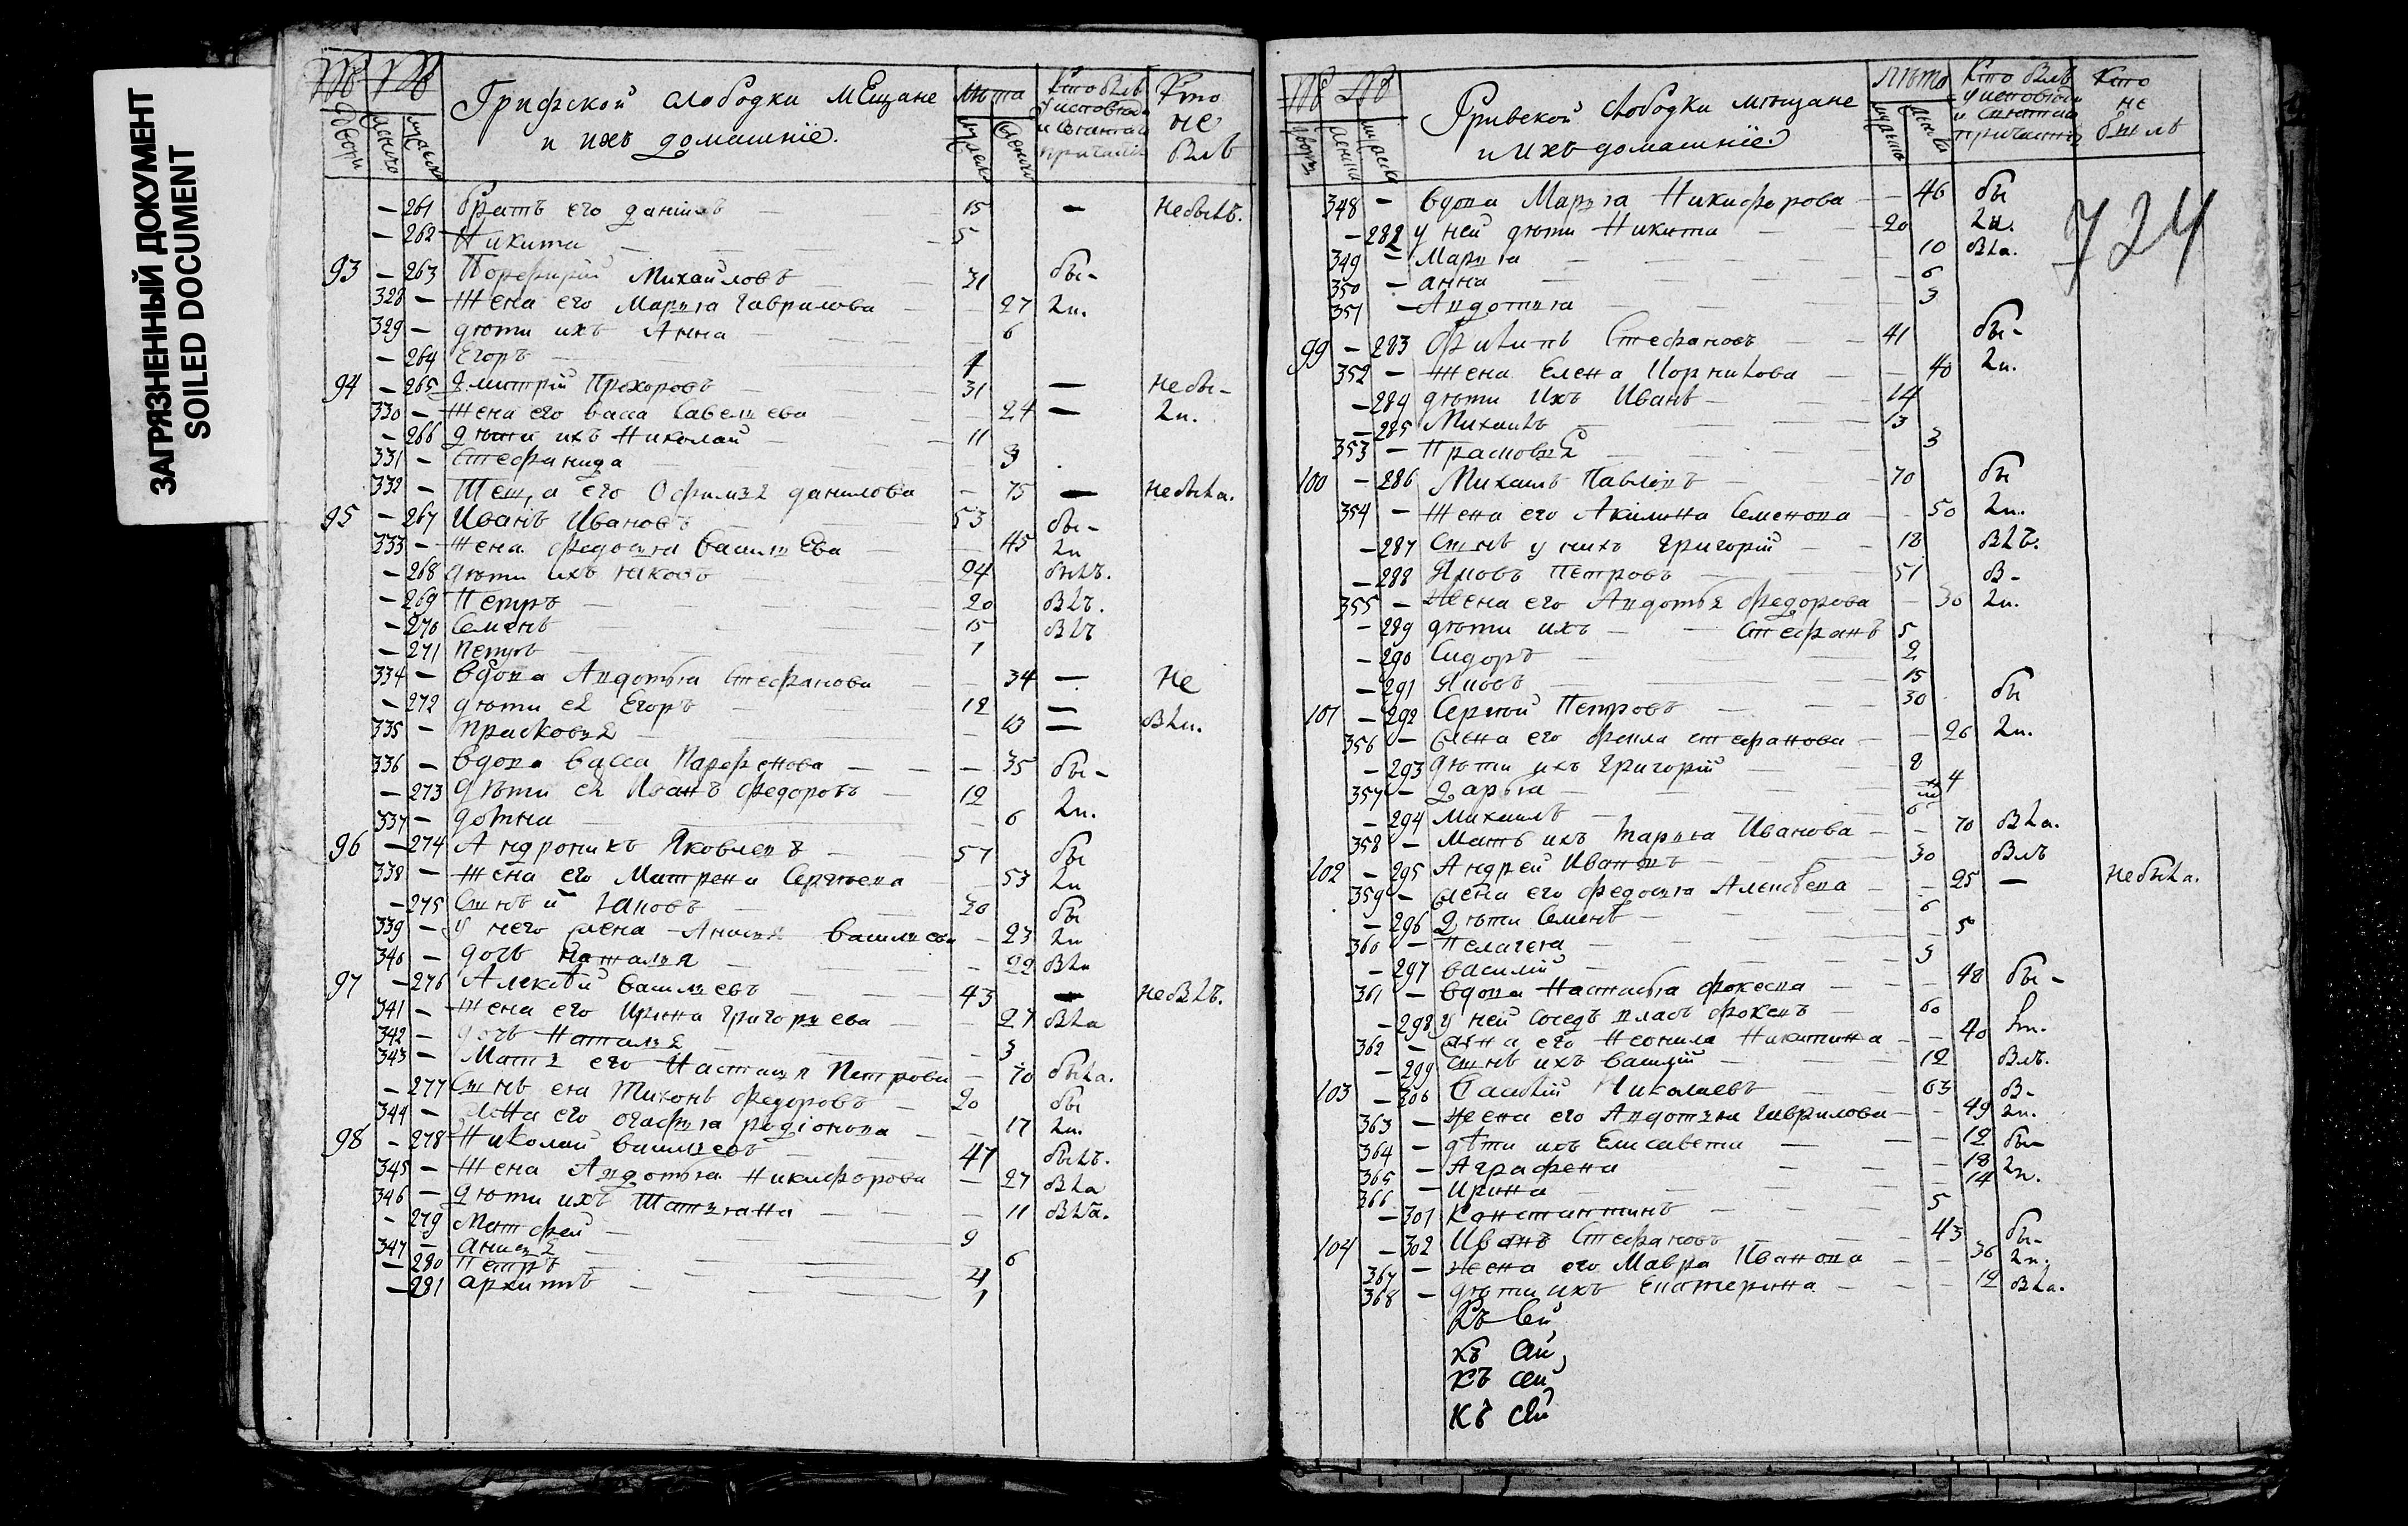 ЗАГРЯЗНЕННЫЙ ДОКУМЕНТ
SOILED DOCUMENT
Грифской слободки мещане
и ихъ домашніе.
Кто не былъ
— 261 братъ его даніилъ 15 — небылъ.
— 262 Никита 5
93 — 263 Порфирій Михайловъ 31 бы-
328 — жена его Марѳа Гаврилова 27 ли.
329 — дѣти ихъ Анна 6
— 264 Егоръ 1
94 — 265 Дмитрій Прохоровъ 31 — небы-
330 — жена его васса савельева 24 — ли.
— 266 дѣти ихъ Николай 11
331 — Стефанида 3
332 — Теща его данилова 75 — небыла.
95 — 267 Иванъ Ивановъ 53 бы-
333 — жена федосья васильева 45 ли
— 268 дѣти ихъ яковъ 24 былъ.
— 269 Петръ 20 былъ.
— 270 Семенъ 15 былъ
— 271 петръ 1
334 — вдова Авдотья Стефанова 34 — не
— 272 дѣти ея Егоръ 12 —
335 — прасковья 13 — были.
336 — вдова васса Парфенова 35 бы-
— 273 дѣти ея Иванъ федоровъ 12 ли.
337 — 6
96 — 274 Андроникъ Яковлевъ 57 бы
338 — жена его Матрена Сергѣева 53 ли
— 275 Сынъ и Яковъ 30 бы
339 — у него жена Анисья васильева 23 ли
340 — дочь наталья 22 была
97 — 276 Алексѣй васильевъ 43 — небылъ.
341 — жена его Ирина григорьева 27 была
342 — дочь Наталья 3
343 — Мать его Настасья Петрова 70 была.
— 277 Сынъ ея Тихонъ федоровъ 20 бы
344 — жена его огафья родіонова 17 ли.
98 — 278 Николай васильевъ 47 былъ.
345 — жена Авдотья Никифорова 27 была
346 — дѣти ихъ Татьяна 11 была.
— 279 Матфей 9
347 — анисья 6
— 280 Петръ 4
— 281 архипъ 1
Гривской слободки мѣщане
и ихъ домашніе.
лѣта
Кто не былъ
724
348 — вдова Марѳа Никифорова 46 бы
— 282 у ней дѣти Никита 20 ли.
349 — Марья 10 была.
350 — анна 6
351 — Авдотья 3
99 — 283 Филипъ Стефановъ 41 бы-
352 — жена Елена Корнилова 40 ли.
— 284 дѣти ихъ Иванъ 14
— 285 Михаилъ 13
353 — Прасковья 3
100 — 286 Михаилъ Павловъ 70 бы
354 — жена его Акилина Семенова 50 ли.
— 287 Сынъ у нихъ григорій 18 былъ.
— 288 Яковъ Петровъ 51 бы-
355 — жена его Авдотья федорова 30 ли.
— 289 дѣти ихъ Стефанъ 5
— 290 Сидоръ 2
— 291 яковъ 15
101 — 292 Сергей Петровъ 30 бы
356 — жена его фекла стефанова 26 ли.
— 293 дѣти ихъ григорій 8
357 — дарья 4
— 294 михаилъ 6
358 — мать ихъ марья Иванова 70 была.
102 — 295 Андрей Ивановъ 30 былъ
359 — жена его федосья Алексѣева 25 — небыла.
— 296 дѣти Семенъ 6
360 — пелагея 5
— 297 василій 3
361 — вдова Настасья фокеева 48 бы-
— 298 у ней соседъ власъ фокеевъ 60 ли.
362 — жена его Неонила Никитина 40
— 299 сынъ ихъ василій 12 былъ.
103 — 300 Савелій Николаевъ 63 бы-
363 — жена его Авдотья гаврилова 49 ли.
364 — дѣти ихъ Елисавета 12 бы-
365 — Аграфена 18 ли.
366 — Ирина 14
— 301 Константинъ 5
104 — 302 Иванъ Стефановъ 43 бы-
367 — жена его Мавра Иванова 36 ли.
368 — дѣти ихъ Екатерина 12 была.
Къ сей
къ сей
къ сей
къ сей